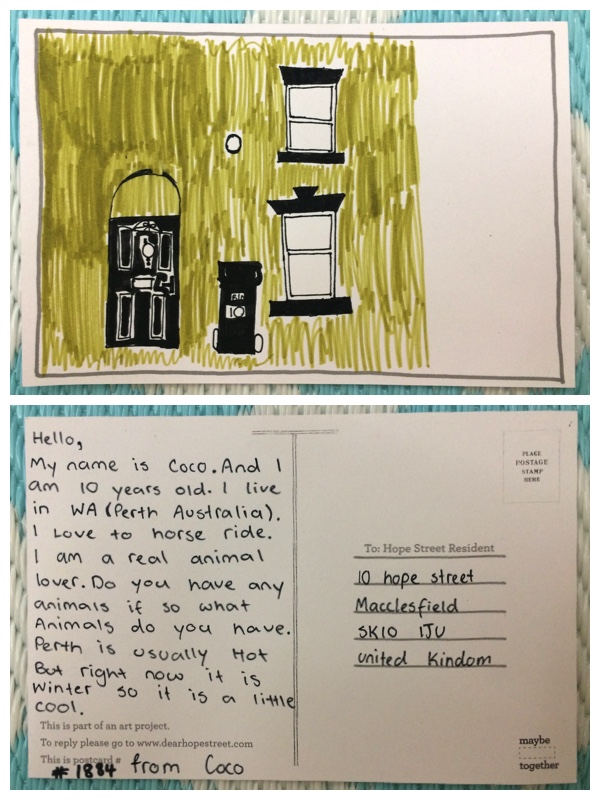 10
Hello,
My name is Coco. And I
am 10 years old. I live
in WA (Perth Australia).
I Love to horse ride.
I am a real animal
lover. Do you have any
animals if so what
Animals do you have.
Perth is usually Hot
But right now it is
Winter so it is a little
cool.
This is part of an art project.
To reply please go to www.dearhopestreet.com
This is postcard #
#1884 from Coco
PLACE
POSTAGE
STAMP
HERE
To: Hope Street Resident
10 hope street
Macclesfield
SK10 1JU
united Kindom
maybe
together